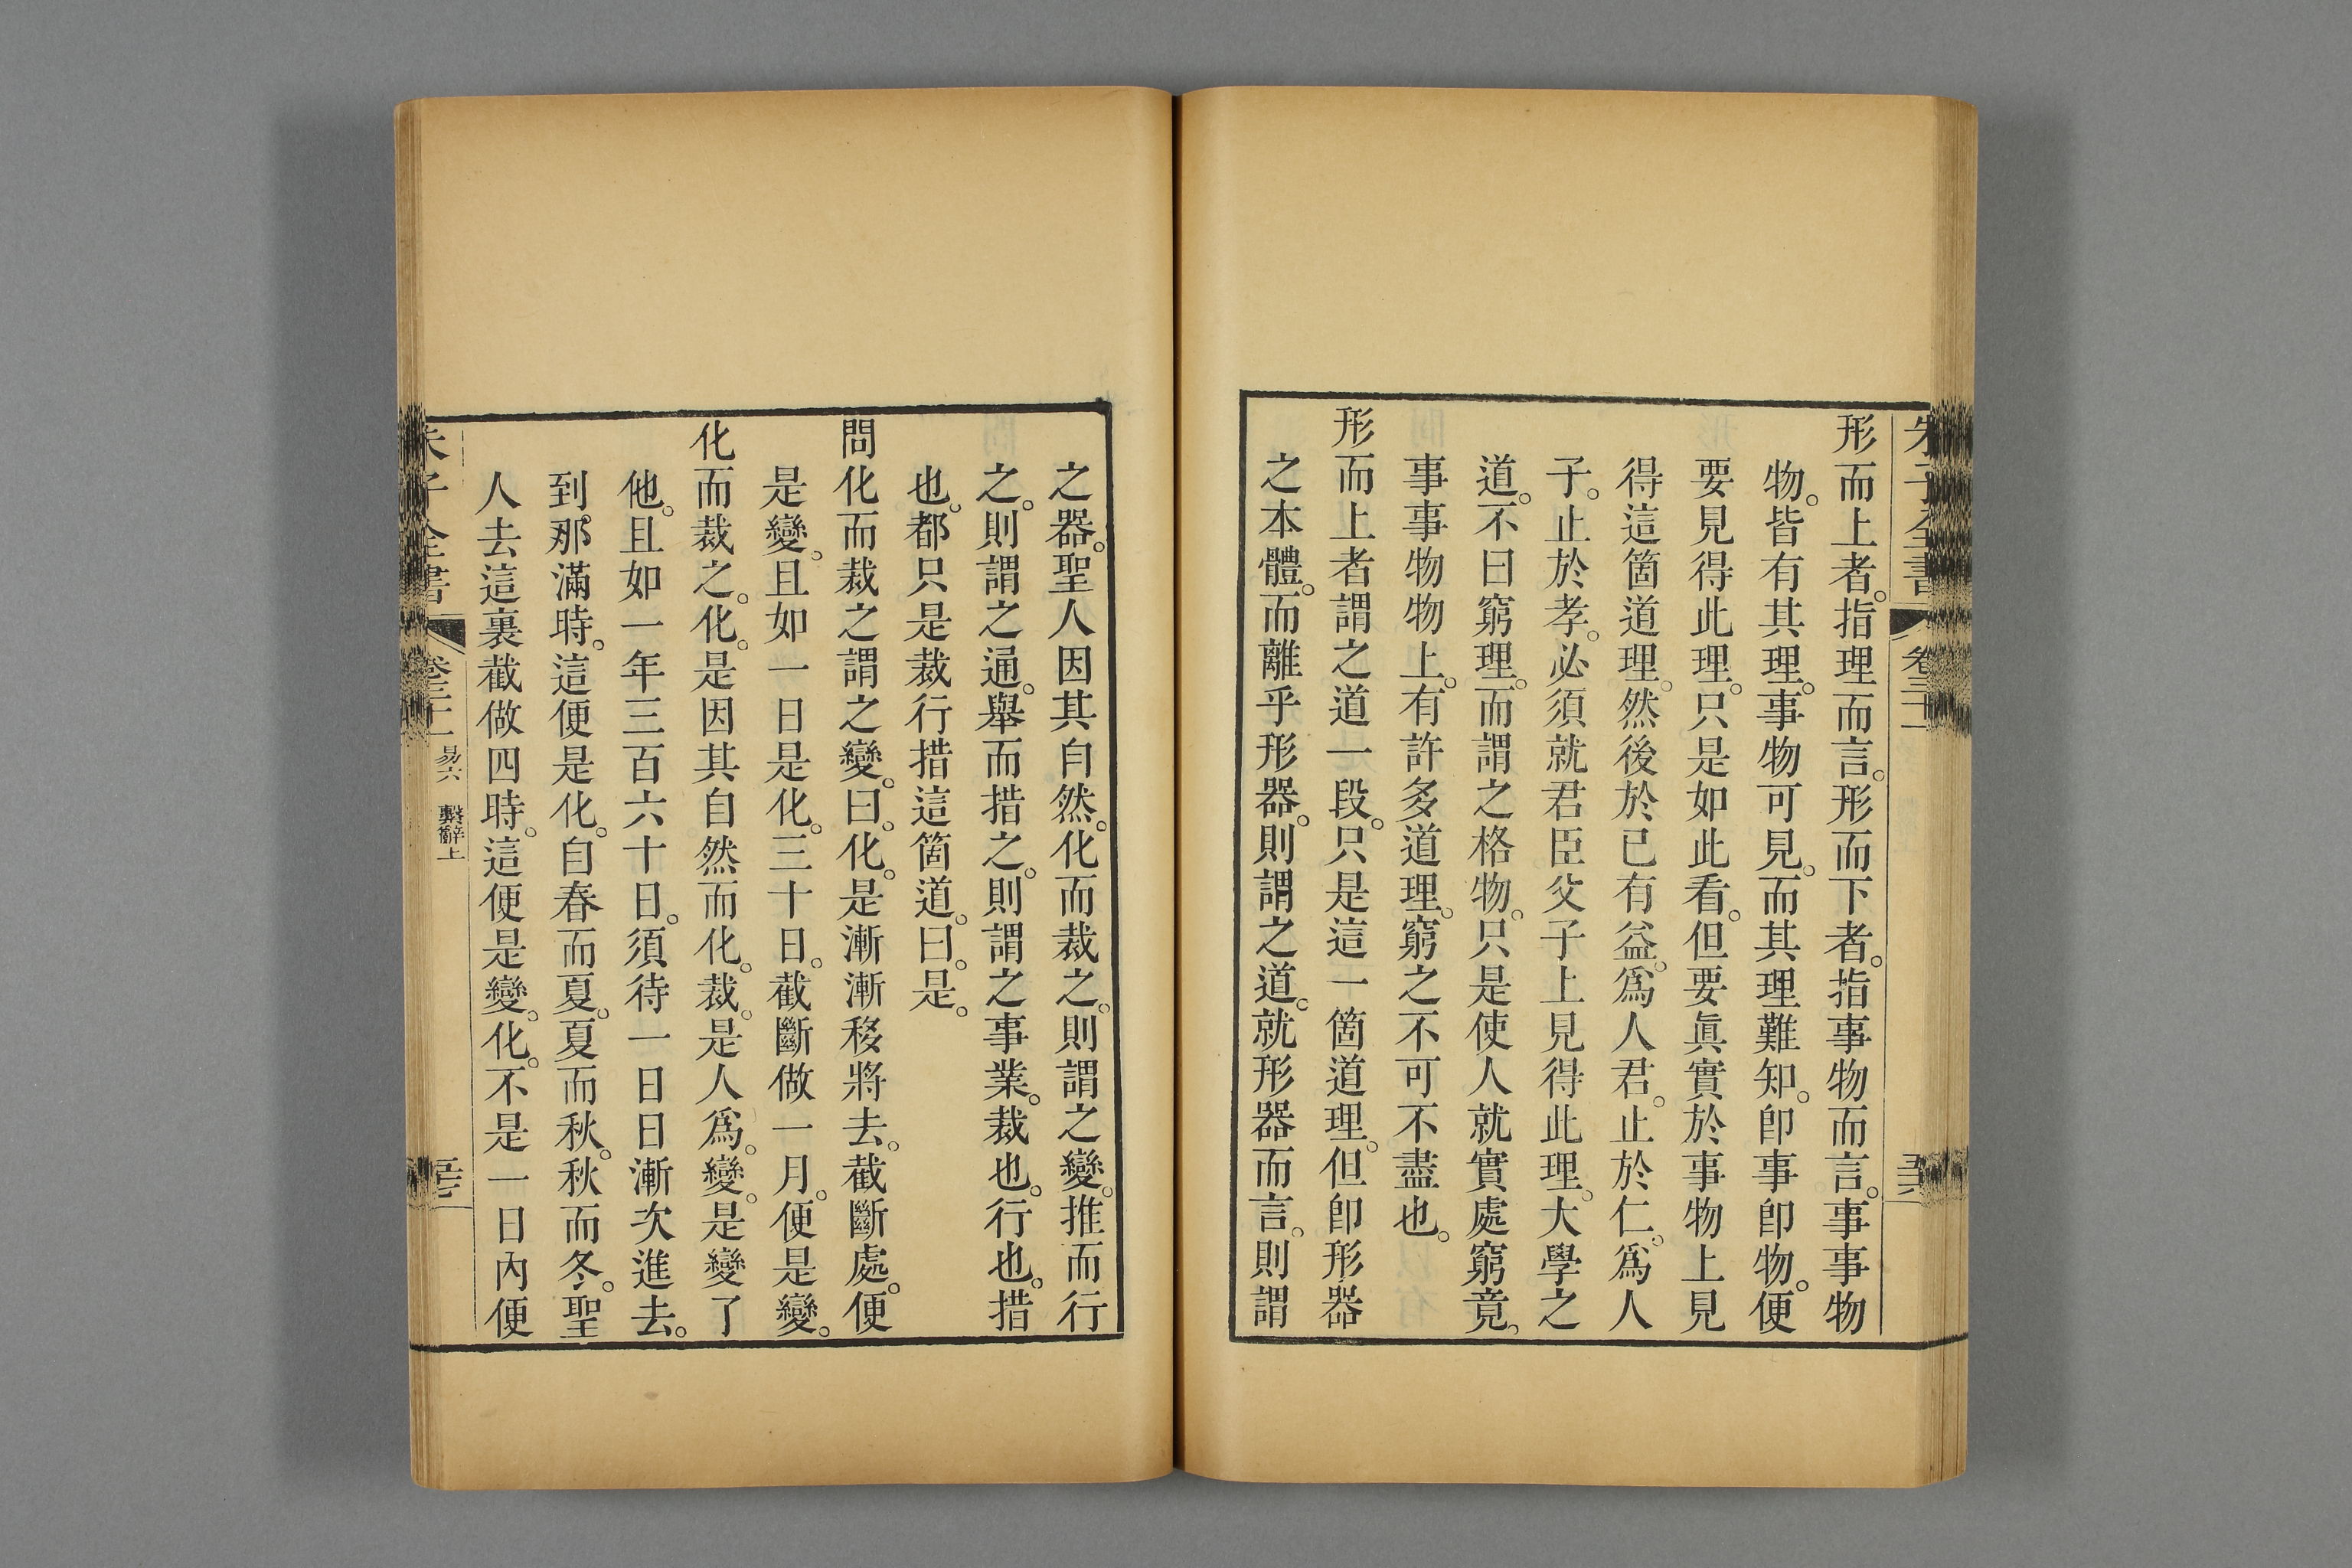 形而上者。指理而言。形而下者。指事物而言。事事物
物。皆有其理。事物可見。而其理難知。卽事卽物。便
要見得此理。只是如此看。但要眞實於事物上見
得這箇道理。然後於已有益。爲人君。止於仁。爲人
子。止於孝。必須就君臣父子上見得此理。大學之
道。不曰窮理。而謂之格物。只是使人就實處窮竟。
事事物物上。有許多道理。窮之不可不盡也。
形而上者謂之道一段。只是這一箇道理。但卽形器
之本體。而離乎形器。則謂之道。就形器而言。則謂
之器。聖人因其自然。化而裁之。則謂之變。推而行
之。則謂之通。舉而措之。則謂之事業。裁也。行也。措
也。都只是裁行措這箇道。曰。是。
問化而裁之謂之變。曰。化。是漸漸移將去。截斷處。便
是變。且如一日是化。三十日。截斷做一月。便是變。
化而裁之。化。是因其自然而化。裁。是人爲。變。是變了
他。且如一年三百六十日。須待一日日漸次進去。
到那滿時。這便是化。自春而夏。夏而秋。秋而冬。聖
人去這裏截做四時。這便是變。化。不是一日內便
朱子全書
易六 繫辭上